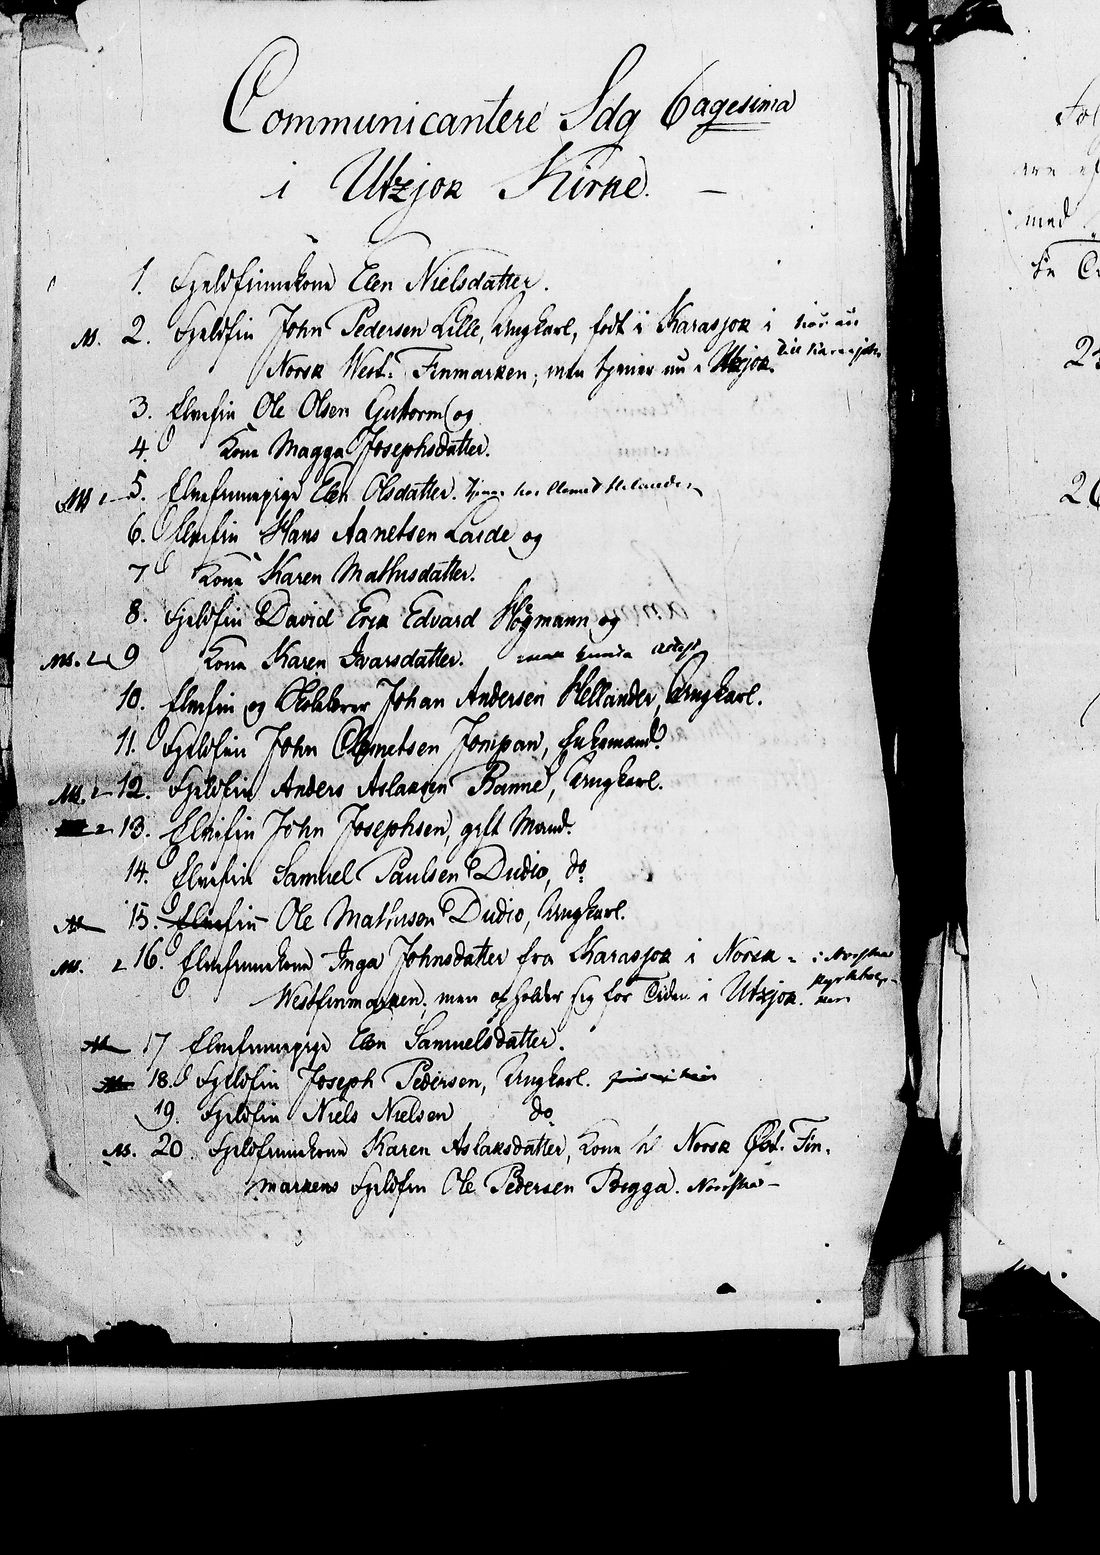 Communicantere Sdg 6agesima
i Utzjok Kirke. —
1. Fjeldfinnekone Elen Nielsdatter.
Ns. 2. Fjeldfin John Pedersen Lille, Ungkarl, født i Karasjok i
Norsk West-Finmarken; men tjener nu i Utzjok.
3. Elvefin Ole Olsen Guttorm og
4. Kone Magga Josephsdatter.
5. Elvefinnepige Elen Olsdatter.
6. Elvefin Hans Aanetsen Laide og
7 Kone Karen Mathisdatter.
8. Fjeldfin David Erik Edvard Høgmann og
Ns. 9 Kone Karen Ivarsdatter.
10. Elvefin og Johan Andersen Hellander, Ungkarl.
11. Fjeldfin John Jompan, Enkemand.
Ns. 12. Fjeldfin Anders Aslaksen Banne, Ungkarl.
13. Elvefin John Josephsen, gift Mand.
14. Elvefin Samuel Paulsen Dudio, do
15. Elvefin Ole Mathisen Dudio, Ungkarl.
Ns. 16. Elvefinnekone Inga Johnsdatter fra Karasjok i Norsk- i Norska
Westfinmarken; men opholder sig for Tiden i Utzjok.
17 Elvefinnepige Elen Samuelsdatter.
18. Fjeldfin Joseph Pedersen, Ungkarl.
19. Fjeldfin Niels Nielsen do
Ns. 20. Fjeldfinnekone Karen Aslaksdatter, Kone til Norsk Øst-Fin-
markens Fjeldfin Ole Pedersen Bigga. Norska-